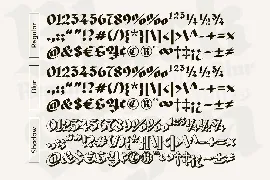 Regular
0123456789%‰ ¹²³¼½¾
.,:;"“”!?#(/){*}[\]<|>^-+=×
@&$€£¥¢©®™*†‡¡¿~-±≠
Blur
0123456789%‰ ¹²³¼½¾
.,:;"“”!?#(/){*}[\]<|>^-+=×
@&$€£¥¢©®™*†‡¡¿~-±≠
Shadow
0123456789%‰ ¹²³¼½¾
.,:;"“”!?#(/){*}[\]<|>^-+=×
@&$€£¥¢©®™*†‡¡¿~-±≠